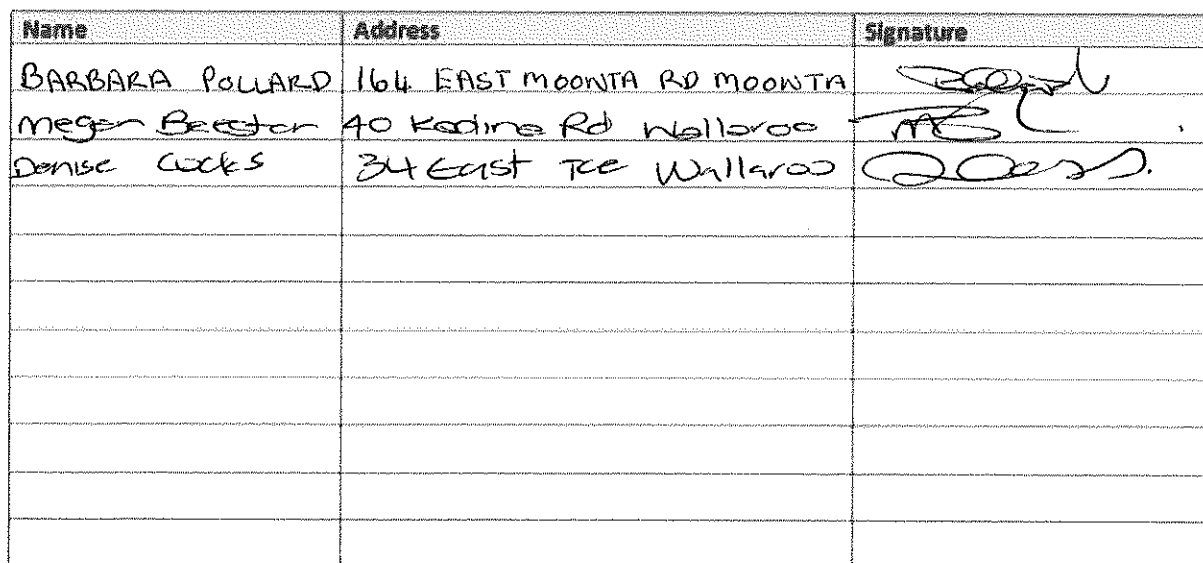 Name Address Signature
BARBARA POLLARD 164 EAST MOONTA RD MOONTA
Megan Beeston 40 Kadina Rd Wallaroo
Denise Cocks 34 East Tce Wallaroo